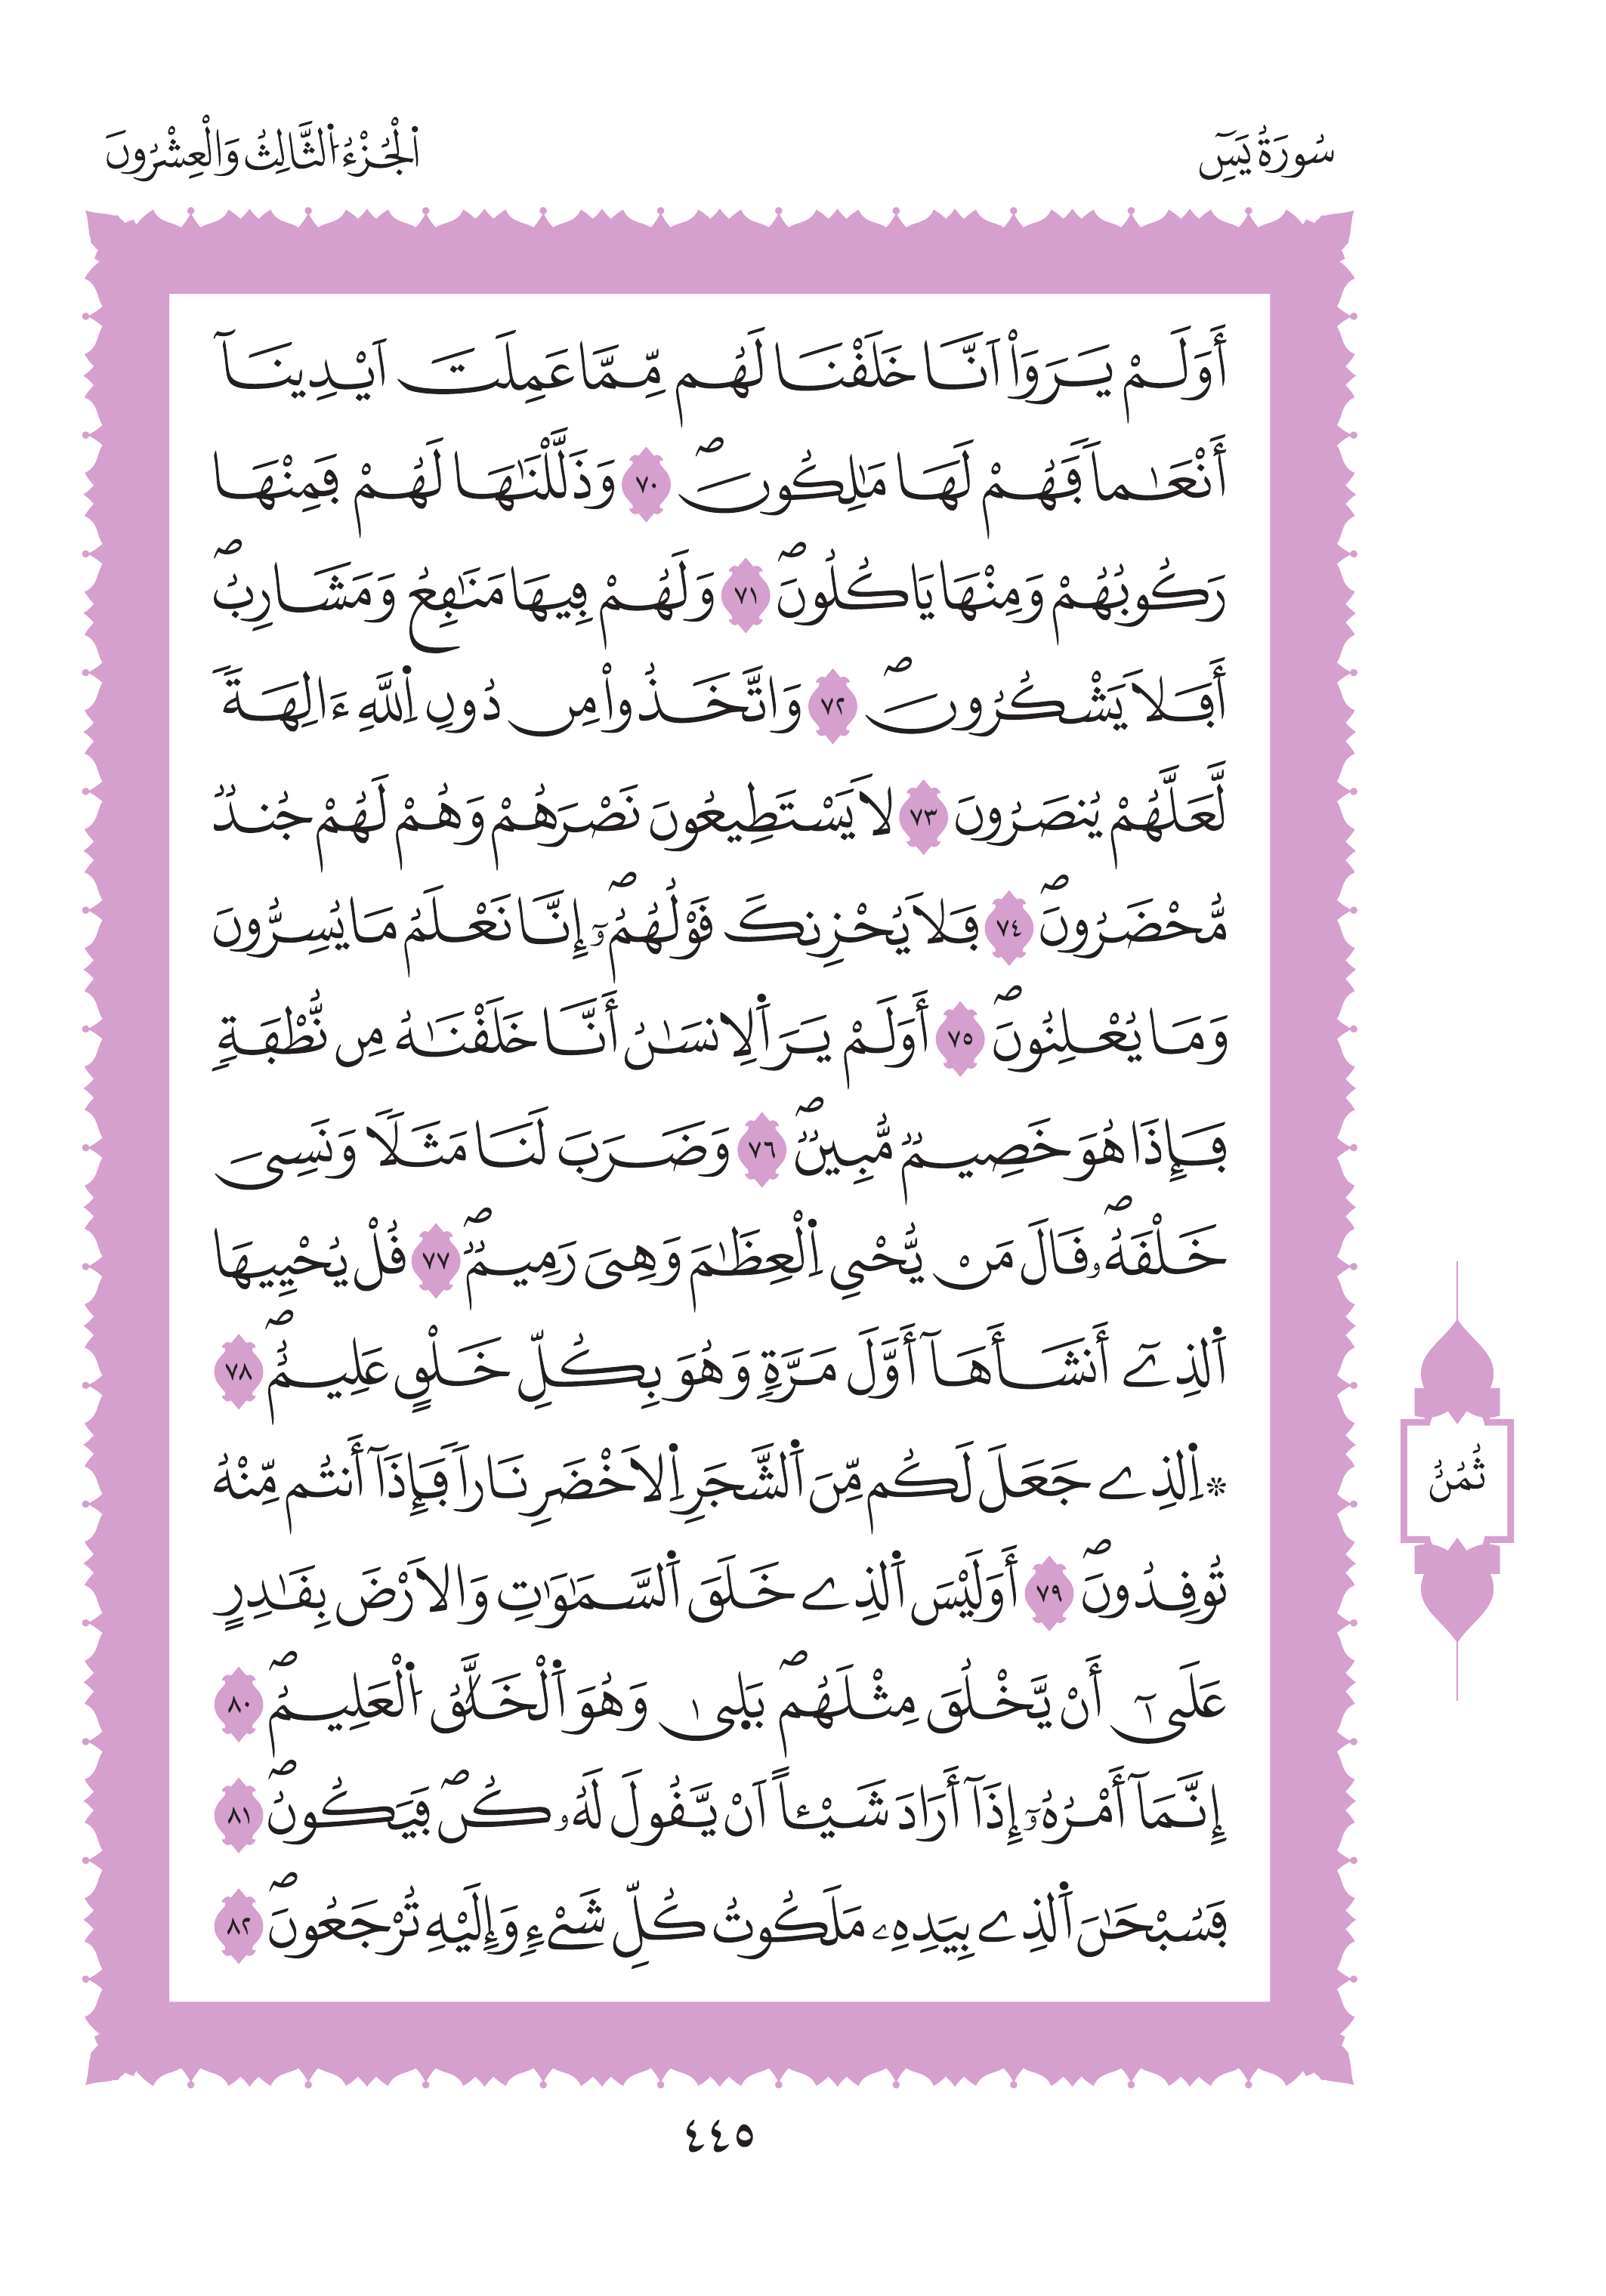 سُورَةُ يَسٓ
اَ۬لْجُزْءُ اُ۬لثَّالِثُ وَالْعِشْرُونَ
أَوَلَمْ يَرَوَاْ اَنَّا خَلَقْنَا لَهُم مِّمَّا عَمِلَتَ اَيْدِينَآ
أَنْعَٰماٗ فَهُمْ لَهَا مَٰلِكُونَۖ ٧٠ وَذَلَّلْنَٰهَا لَهُمْ فَمِنْهَا
رَكُوبُهُمْ وَمِنْهَا يَاكُلُونَۖ ٧١ وَلَهُمْ فِيهَا مَنَٰفِعُ وَمَشَارِبُۖ
أَفَلَا يَشْكُرُونَۖ ٧٢ وَاتَّخَذُواْ مِن دُونِ اِ۬للَّهِ ءَالِهَةٗ
لَّعَلَّهُمْ يُنصَرُونَ ٧٣ لَا يَسْتَطِيعُونَ نَصْرَهُمْ وَهُمْ لَهُمْ جُندٞ
مُّحْضَرُونَۖ ٧٤ فَلَا يُحْزِنكَ قَوْلُهُمُۥٓۖ إِنَّا نَعْلَمُ مَا يُسِرُّونَ
وَمَا يُعْلِنُونَۖ ٧٥ أَوَلَمْ يَرَ اَ۬لِانسَٰنُ أَنَّا خَلَقْنَٰهُ مِن نُّطْفَةٖ
فَإِذَا هُوَ خَصِيمٞ مُّبِينٞۖ ٧٦ وَضَرَبَ لَنَا مَثَلٗا وَنَسِيَ
خَلْقَهُۥۖ قَالَ مَنْ يُّحْيِ اِ۬لْعِظَٰمَ وَهِيَ رَمِيمٞۖ ٧٧ قُلْ يُحْيِيهَا
اَ۬لذِےٓ أَنشَأَهَآ أَوَّلَ مَرَّةٖ وَهُوَ بِكُلِّ خَلْقٍ عَلِيمٌۖ ٧٨
۞ اِ۬لذِے جَعَلَ لَكُم مِّنَ اَ۬لشَّجَرِ اِ۬لَاخْضَرِ نَاراٗ فَإِذَآ أَنتُم مِّنْهُ
تُوقِدُونَۖ ٧٩ أَوَلَيْسَ اَ۬لذِے خَلَقَ اَ۬لسَّمَٰوَٰتِ وَالَارْضَ بِقَٰدِرٍ
عَلَيٰٓ أَنْ يَّخْلُقَ مِثْلَهُمۖ بَلِيٰ وَهُوَ اَ۬لْخَلَّٰقُ اُ۬لْعَلِيمُۖ ٨٠
إِنَّمَآ أَمْرُهُۥٓ إِذَآ أَرَادَ شَيْـٔاً اَنْ يَّقُولَ لَهُۥ كُنۖ فَيَكُونُۖ ٨١
فَسُبْحَٰنَ اَ۬لذِے بِيَدِهِۦ مَلَكُوتُ كُلِّ شَيْءٖ وَإِلَيْهِ تُرْجَعُونَۖ ٨٢
ثُمُنٌ
٤٤٥